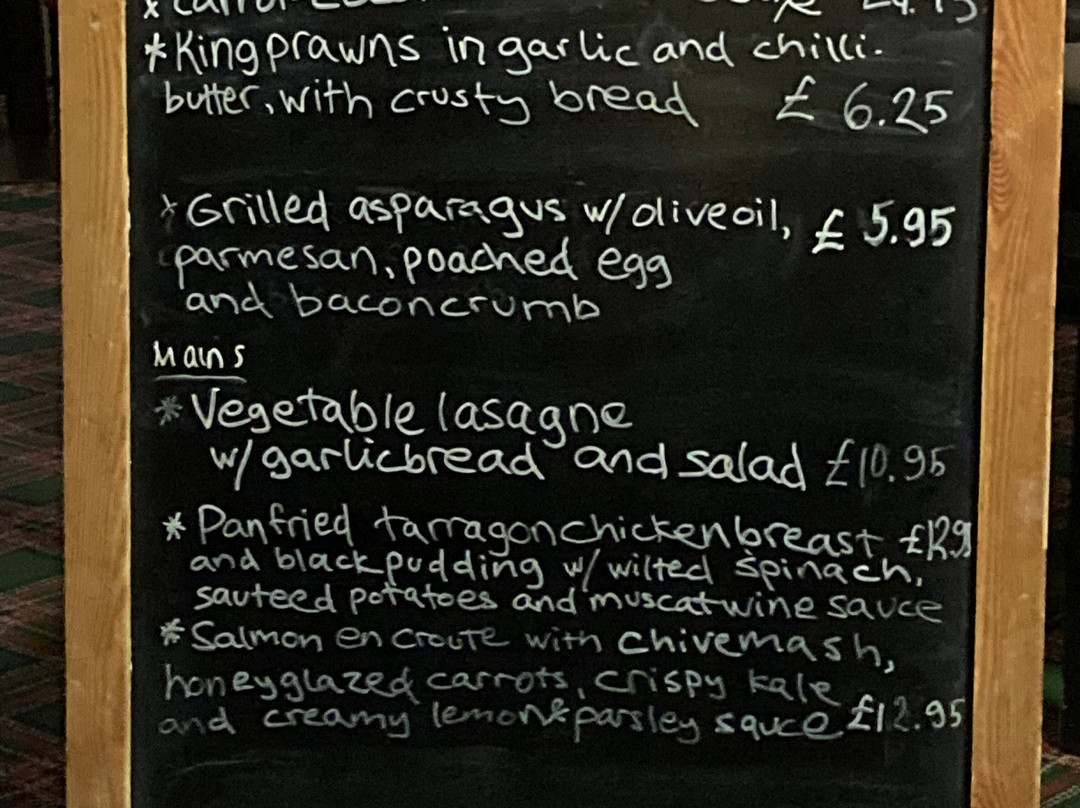 *King prawns in garlic and chilli-
butter, with crusty bread £6.25
*Grilled asparagus w/ olive oil, £5.95
parmesan, poached egg
and bacon crumb
Mains
*Vegetable lasagne
w/ garlicbread and salad £10.95
*Panfried tarragon chicken breast £12.9
and black pudding w/ wilted spinach,
sauteed potatoes and muscat wine sauce
*Salmon en croute with chive mash,
honeyglazed carrots, crispy kale
and creamy lemon & parsley sauce £12.95